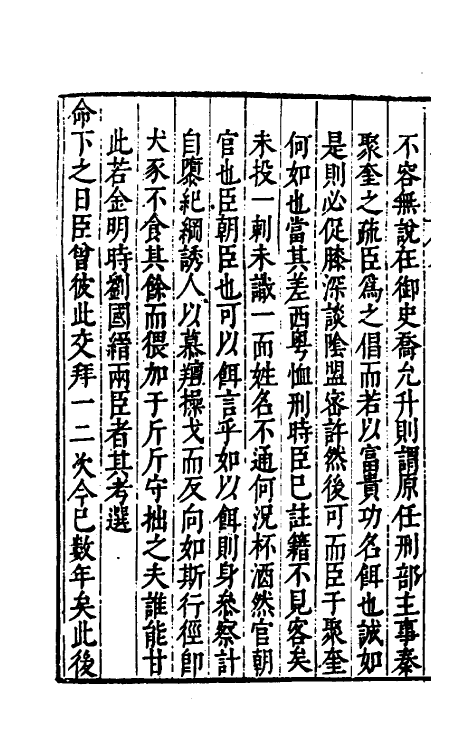 不容無說在御史喬允升則謂原任刑部主事秦
聚奎之疏臣爲之倡而若以富貴功名餌也誠如
是則必促膝深談陰盟密許然後可而臣于聚奎
何如也當其差西粵恤刑時臣已註籍不見客矣
未投一刺未識一面姓名不通何況杯酒然官朝
官也臣朝臣也可以餌言乎如以餌則身叅察計
自隳紀綱誘人以慕羶操戈而反向如斯行徑卽
犬豕不食其餘而猥加于斤斤守拙之夫誰能甘
此若金明時劉國縉兩臣者其考選
命下之日臣曾彼此交拜一二次今已數年矣此後